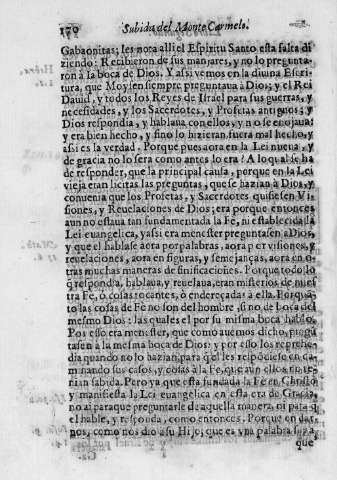 170
Subida del Monte Carmelo.
Gabaonitas; les nota alli el Espiritu Santo esta falta di
ziendo: Recibieron de sus manjares, y no lo pregunta-
ron a la boca de Dios. Y assi vemos en la divina Escri-
tura, que Moysen siempre preguntaua à Dios; y el Rei
David, y todos los Reyes de Israel para sus guerras, y
necesidades, y los Sacerdotes, y Profetas antiguos; y
Dios respondia, y hablaua con ellos, y no se enojaua:
y era bien hecho, y sino lo hizieran, fuera mal hecho, y
assi es la verdad. Porque pues aora en la Lei nueva, y
de gracia no lo sera como antes lo era? A lo qual se ha
de responder, que la principal causa, porque en la Lei
vieja eran licitas las preguntas, que se hazian à Dios, y
conuenia que los Profetas, y Sacerdotes quisiesen Vi-
siones, y Reuelaciones de Dios; era porque entonces
aun no estaua tan fundamentada la Fe, ni establecida la
Lei euangelica, y assi era menester preguntasen à Dios,
y que el hablase aora por palabras, aora por visiones, y
reuelaciones, aora en figuras, y semejanças, aora en o-
tras muchas maneras de sinificaciones. Porque todo lo
q̃ respondia, hablaua, y reuelaua, eran misterios de nues
tra Fe, ò cosas tocantes, ò endereçadas à ella. Porquã-
to las cosas de Fè no son del hombre, sino de boca del
mesmo Dios: las quales el por su misma boca hablò.
Por esso era menester, que como auemos dicho, pregũ
tasen à la mesma boca de Dios: y por esso los reprehẽ-
dia quando no lo hazian, para q̃ èl les respõdiese en ca-
minando sus casos, y cosas à la Fe, que aun ellos no te-
nian sabida. Pero ya que esta fundada la Fe en Christo
y manifiesta la Lei euangelica en esta era de Gracia,
no ai para que preguntarle de aquella manera, ni para q̃
el hable, y responda, como entonces. Porque en dar-
nos, como nos dio à su Hijo, que es vna palabra suya,
que